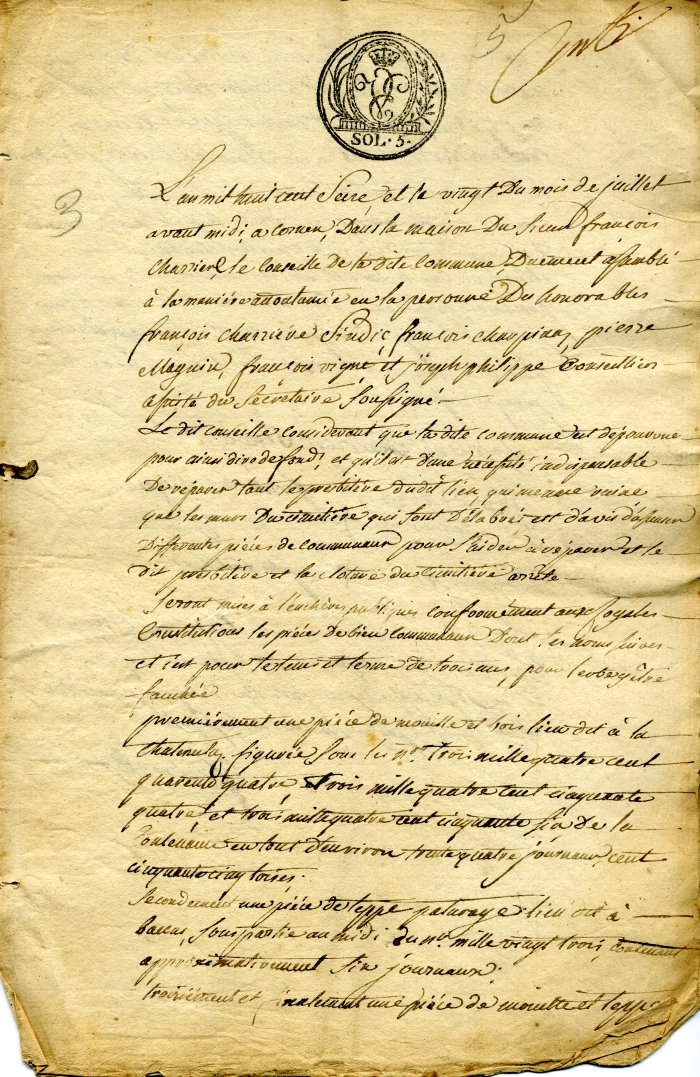 5
SOL. 5.
3
L'an mil huit cent Seize et le vingt Du mois de juillet
avant midi, a Dans la maison Du Sieur françois
le Conseille de la dite Commune, Duement assemblé
à la maniere accoutumée en la personne Des honorables
françois Charriere Sindic, françois pierre
Magnin, françois vigne et joseph philippe Conseilliers
assisté du Sécretaire Soussigné –
Le dit conseille considerant que la dite commune est dépourvue
pour ainsi dire de fond, et qu'il est d'une nécessité indispensable
De réparer tout le presbitère dudit lieu qui menace ruine
que les murs Du cimitière qui sont Délabrés est d'avis
Differentes pièces de communaux pour s'aider à réparer et le
dit presbitère et la cloture du cimitière arrête –
Seront mises à l'enchères publiques conformément aux Royales
Constitutions les pièces de bien communaux Dont les noms suivent
et c'est pour le tems et terme de trois ans, pour l'erbe y être
fauchée
premièrement une pièce de mouille et bois lieu dit à la
figurée Sous les Nos. trois mille quatre cent
quarente quatre, trois mille quatre cent cinquante
quatre et trois mille quatre cent cinquante six de la
Contenance en tout d'environ trente quatre journaux, cent
cinquante cinq toises.
Secondement une pièce de teppe paturage lieu dit à
Sous partie au midi du No. mille vingt trois, contenant
approximativement Six journaux.
troisiément et finalement une pièce de mouille et teppe